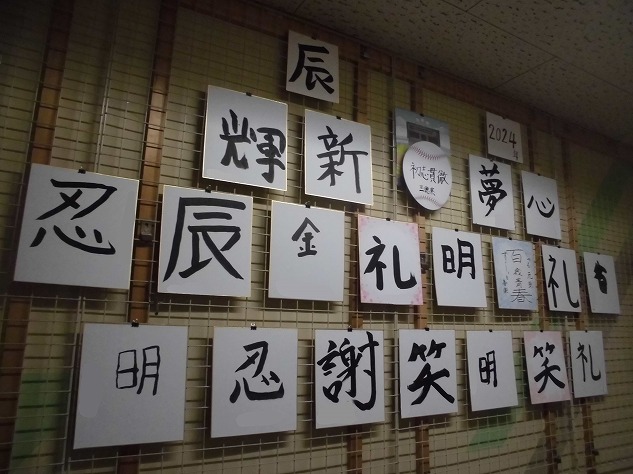 辰
輝
新
初志貫徹
2024
夢
心
忍
辰
金
礼
明
礼
明
忍
謝
笑
明
笑
礼